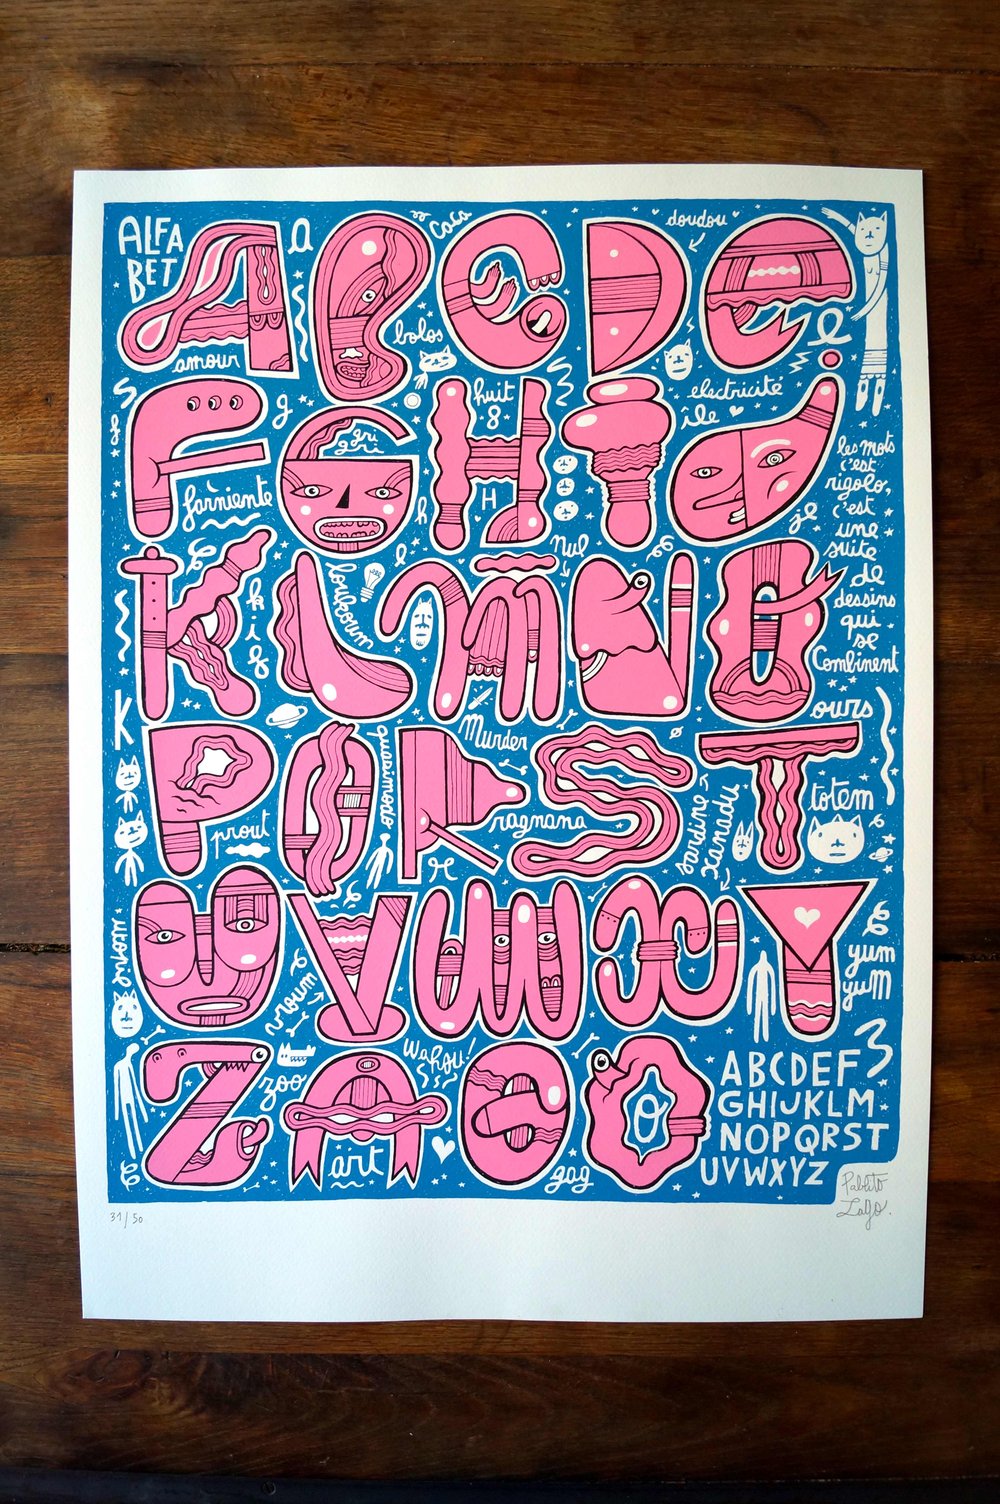 ALFA
BET
A B C D E
a
coco
doudou
amour
bolos
e
F G H I J
s
g
huit
8
electricité
île
gri
gri
farniente
h
H
je
les mots
c'est
rigolo,
c'est
une
suite
de
dessins
qui
se
Combinent
K L M N O
l
nul
kif
loukoum
K
Murder
ours
P Q R S T
quasimodo
prout
ragnana
r
sardine
xanadu
totem
U V W X Y
utopie
vroum
yum
yum
Z A G O
zoo
Wahou!
ärt
gag
o
3
ABCDEF
GHIJKLM
NOPQRST
UVWXYZ
31/50
Pablito
Zago.